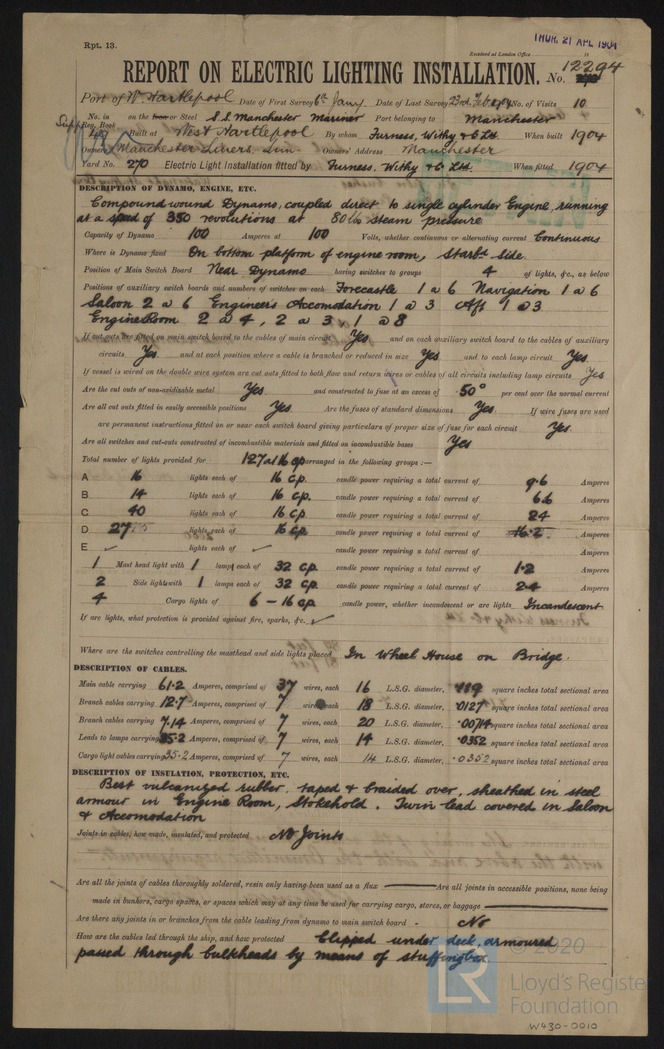 Rpt. 13.
Received at London Office
THUR. 21 APL 1904
REPORT ON ELECTRIC LIGHTING INSTALLATION. No. 12294
Port of W. Hartlepool Date of First Survey 6th Jany. Date of Last Survey 23rd. Feb 1904 No. of Visits 10
No. in Reg. Book on the Iron or Steel S.S. Manchester Mariner Port belonging to Manchester
Supp 409 Built at West Hartlepool By whom Furness, Withy & Co Ltd. When built 1904
Owners Manchester Liners, Lim. Owners' Address Manchester
Yard No. 270 Electric Light Installation fitted by Furness, Withy & Co Ltd. When fitted 1904
DESCRIPTION OF DYNAMO, ENGINE, ETC.
Compound wound Dynamo, coupled direct to single cylinder Engine, running
at a speed of 350 revolutions at 80 lbs steam pressure
Capacity of Dynamo 100 Amperes at 100 Volts, whether continuous or alternating current Continuous
Where is Dynamo fixed On bottom platform of engine room, Starbd. Side.
Position of Main Switch Board Near Dynamo having switches to groups 4 of lights, &c., as below
Positions of auxiliary switch boards and numbers of switches on each Forecastle 1 a 6 Navigation 1 a 6
Saloon 2 a 6 Engineers Accomodation 1 a 3 Aft 1 a 3
Engine Room 2 a 4, 2 a 3 1 a 8
If cut outs are fitted on main switch board to the cables of main circuit Yes and on each auxiliary switch board to the cables of auxiliary
circuits Yes and at each position where a cable is branched or reduced in size Yes and to each lamp circuit Yes
If vessel is wired on the double wire system are cut outs fitted to both flow and return wires or cables of all circuits including lamp circuits Yes
Are the cut outs of non-oxidizable metal Yes and constructed to fuse at an excess of 50° per cent over the normal current
Are all cut outs fitted in easily accessible positions Yes Are the fuses of standard dimensions Yes If wire fuses are used
are permanent instructions fitted on or near each switch board giving particulars of proper size of fuse for each circuit Yes
Are all switches and cut-outs constructed of incombustible materials and fitted on incombustible bases Yes
Total number of lights provided for 127 at 16 cp arranged in the following groups :—
A 16 lights each of 16 c.p. candle power requiring a total current of 9.6 Amperes
B 14 lights each of 16 c.p. candle power requiring a total current of 6.6 Amperes
C 40 lights each of 16 c.p. candle power requiring a total current of 24 Amperes
D 27 lights each of 16 c.p. candle power requiring a total current of 16.2 Amperes
E ✓ lights each of ✓ candle power requiring a total current of Amperes
1 Mast head light with 1 lamps each of 32 c.p. candle power requiring a total current of 1.2 Amperes
2 Side lights with 1 lamps each of 32 c.p. candle power requiring a total current of 2.4 Amperes
4 Cargo lights of 6 - 16 c.p. candle power, whether incandescent or arc lights Incandescent
If arc lights, what protection is provided against fire, sparks, &c. ✓
Where are the switches controlling the masthead and side lights placed In Wheel House on Bridge.
DESCRIPTION OF CABLES.
Main cable carrying 61.2 Amperes, comprised of 37 wires, each 16 L.S.G. diameter, .119 square inches total sectional area
Branch cables carrying 12.7 Amperes, comprised of 7 wires, each 18 L.S.G. diameter, .0127 square inches total sectional area
Branch cables carrying 7.14 Amperes, comprised of 7 wires, each 20 L.S.G. diameter, .00714 square inches total sectional area
Leads to lamps carrying 35.2 Amperes, comprised of 7 wires, each 14 L.S.G. diameter, .0352 square inches total sectional area
Cargo light cables carrying 35.2 Amperes, comprised of 7 wires, each 14 L.S.G. diameter, .0352 square inches total sectional area
DESCRIPTION OF INSULATION, PROTECTION, ETC.
Best vulcanized rubber, taped & braided over, sheathed in steel
armour in Engine Room, Stokehold. Twin lead covered in Saloon
& Accomodation
Joints in cables, how made, insulated, and protected No Joints
Are all the joints of cables thoroughly soldered, resin only having been used as a flux — Are all joints in accessible positions, none being
made in bunkers, cargo spaces, or spaces which may at any time be used for carrying cargo, stores, or baggage —
Are there any joints in or branches from the cable leading from dynamo to main switch board No
How are the cables led through the ship, and how protected Clipped under deck, armoured
passed through bulkheads by means of stuffingbox.
LR © 2020
Lloyd's Register
Foundation
W430-0010